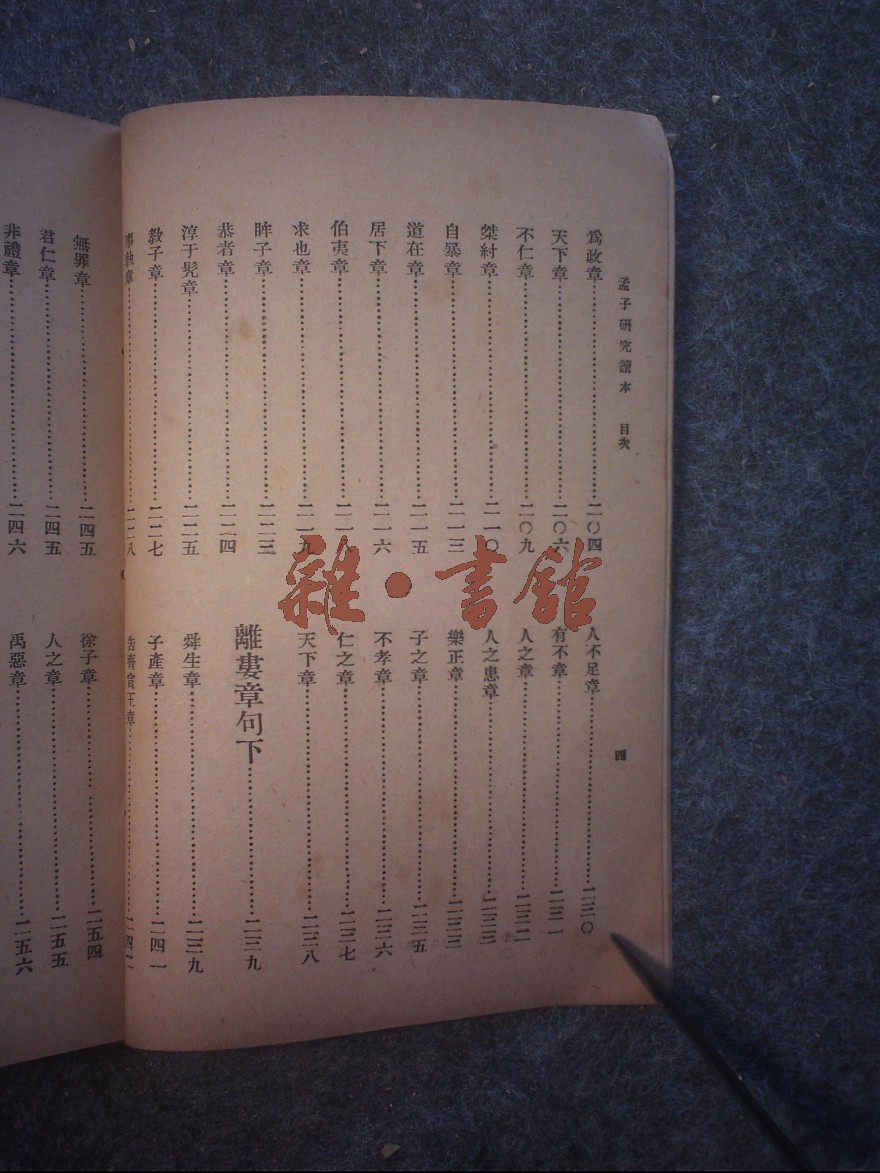 孟子研究讀本 目次 四
爲政章……二〇四
天下章……二〇六
不仁章……二〇九
桀紂章……二一〇
自暴章……二一三
道在章……二一五
居下章……二一六
伯夷章……二一
求也章……二一九
眸子章……二二三
恭者章……二二四
淳于髡章……二二五
教子章……二二七
章……二二八
人不足章……二三〇
有不章……二三一
人之章……二三二
人之患章……二三三
樂正章……二三三
子之章……二三五
不孝章……二三六
仁之章……二三七
天下章……二三八
離婁章句下……二三九
舜生章……二三九
子產章……二四一
告齊宣王章……二四二
無罪章……二四五
君仁章……二四五
非禮章……二四六
徐子章……二五四
人之章……二五五
禹惡章……二五六
雜·書館